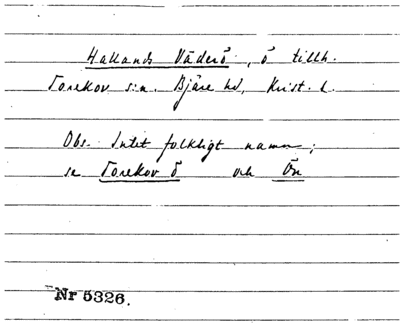 Hallands Väderö, ö tillh.
Torekov s:n. Bjäre hd, Krist. l.
Obs. Intet folkligt namn;
se Torekov ö och Ön
Nr 5326.